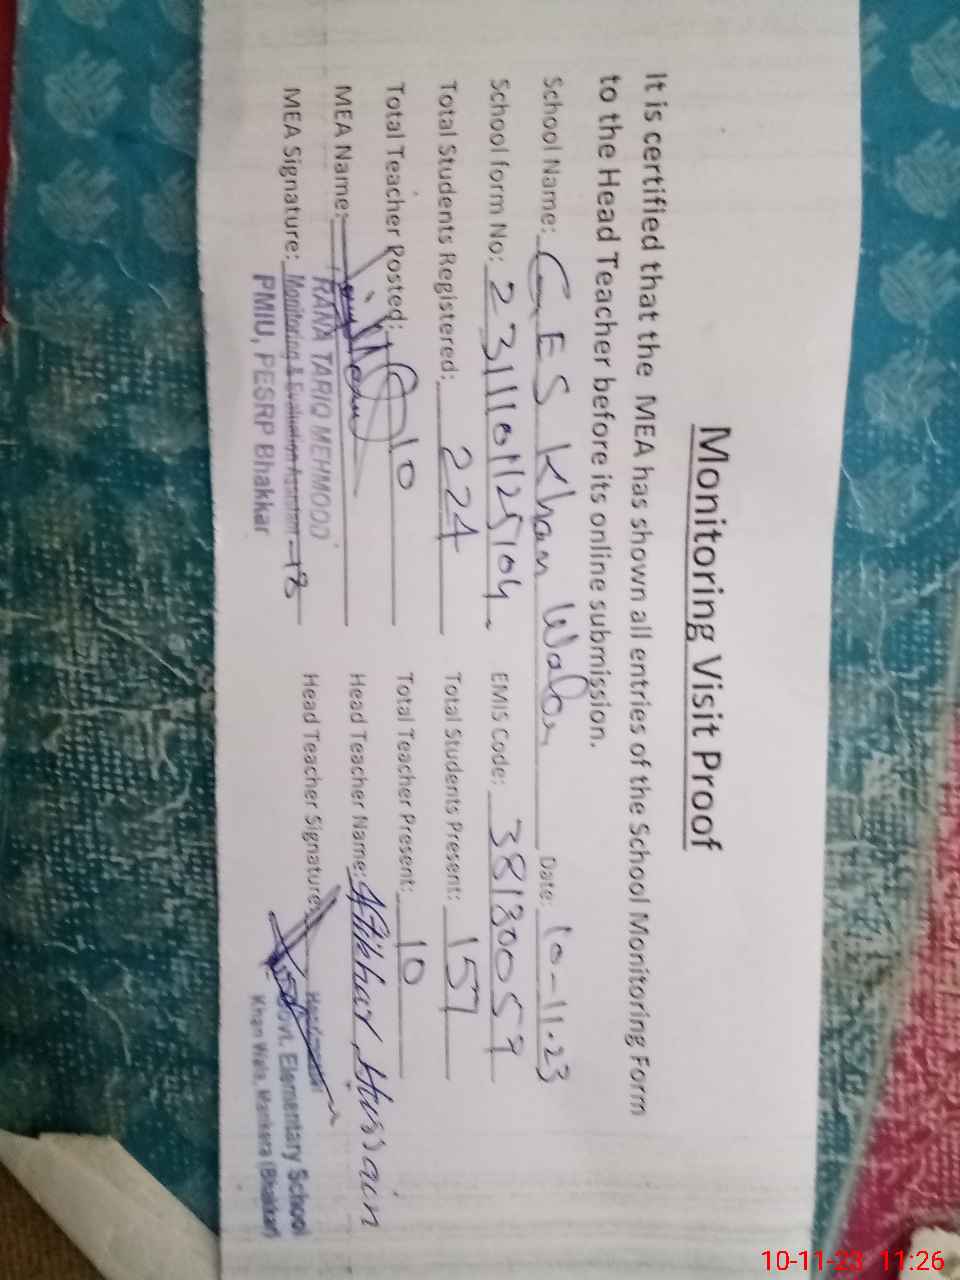 Monitoring Visit Proof
It is certified that the MEA has shown all entries of the School Monitoring Form
to the Head Teacher before its online submission.
School Name: GES Khan Wala Date: 10-11-23
School form No: EMIS Code: 38130059
Total Students Registered: 224 Total Students Present: 157
Total Teacher Posted: 10 Total Teacher Present: 10
MEA Name: Head Teacher Name: Iftikhar Hussain
RANA TARIQ MEHMOOD
MEA Signature: Monitoring & Evaluation Assistant-18 Head Teacher Signature:
PMIU, PESRP Bhakkar
Headmaster
Govt. Elementary School
Khan Wala, Mankera (Bhakkar)
10-11-23 11:26